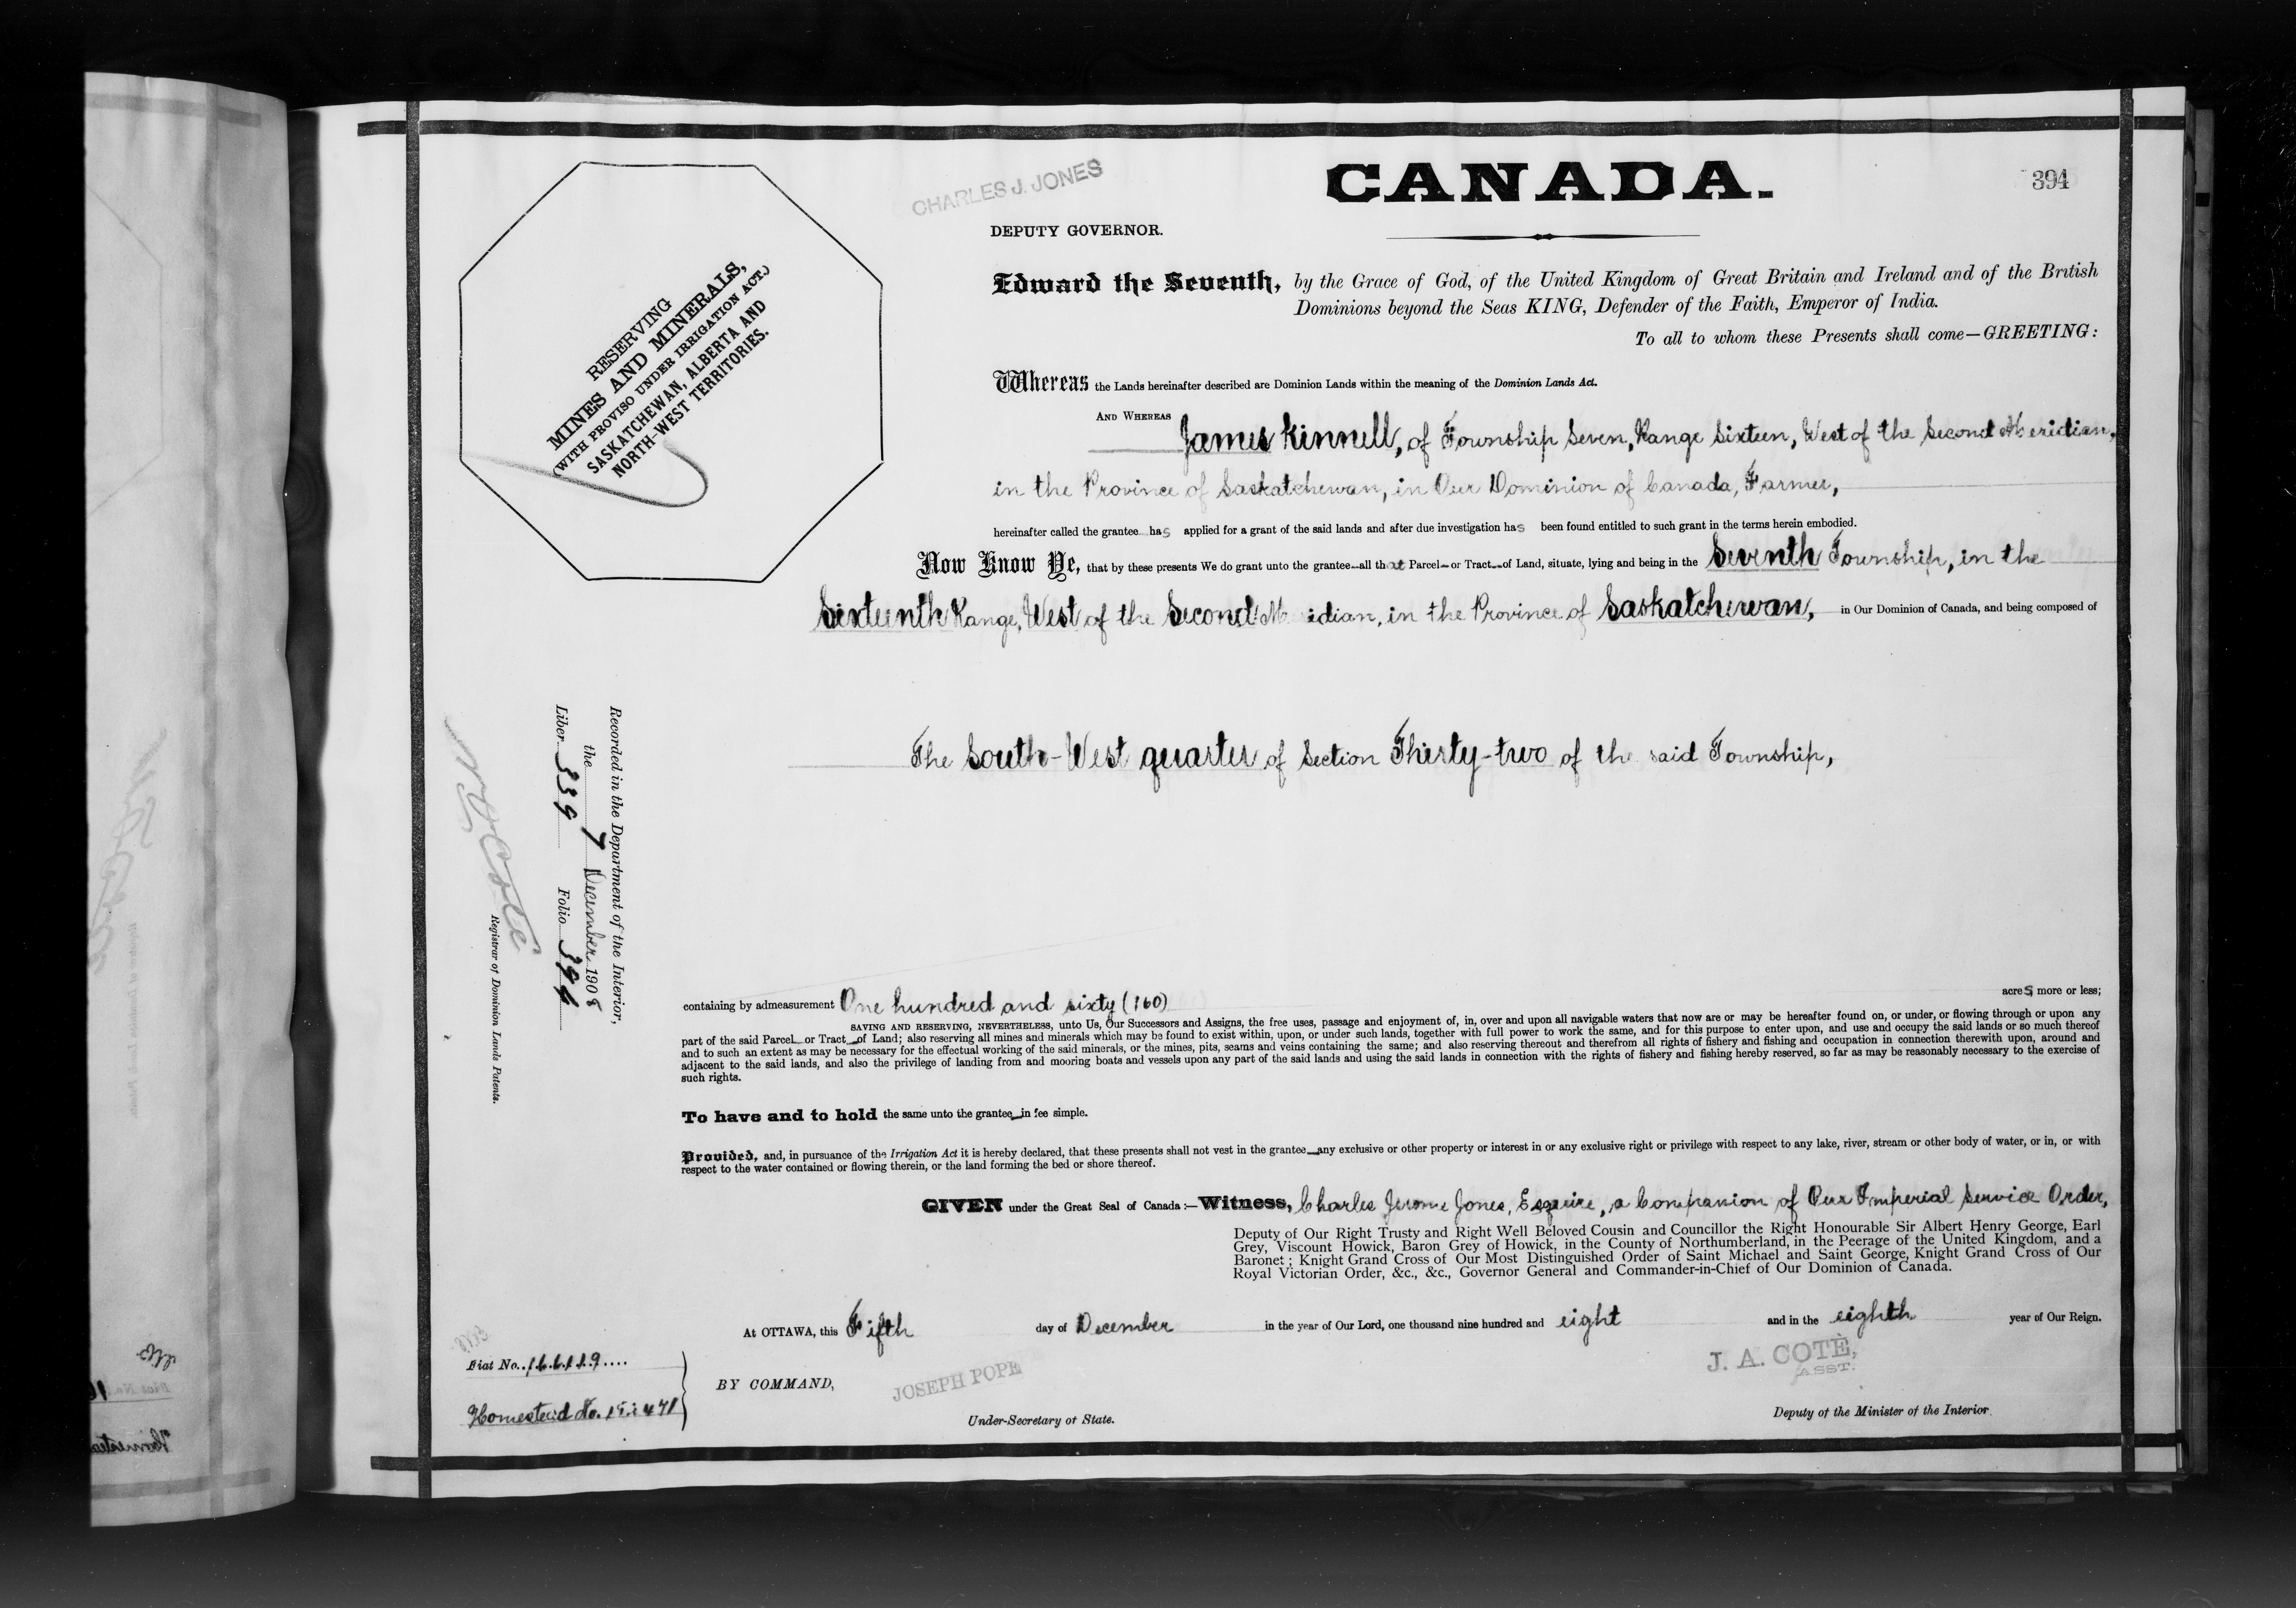 CHARLES J. JONES
CANADA.
394
DEPUTY GOVERNOR.
RESERVING
MINES AND MINERALS,
(WITH PROVISO UNDER IRRIGATION ACT.)
SASKATCHEWAN, ALBERTA AND
NORTH-WEST TERRITORIES.
Edward the Seventh, by the Grace of God, of the United Kingdom of Great Britain and Ireland and of the British
Dominions beyond the Seas KING, Defender of the Faith, Emperor of India.
To all to whom these Presents shall come—GREETING:
Whereas the Lands hereinafter described are Dominion Lands within the meaning of the Dominion Lands Act.
AND WHEREAS James Kinnell, of Township Seven, Range Sixteen, West of the Second Meridian,
in the Province of Saskatchewan, in Our Dominion of Canada, Farmer,
hereinafter called the grantee has applied for a grant of the said lands and after due investigation has been found entitled to such grant in the terms herein embodied.
Now Know Ye, that by these presents We do grant unto the grantee all that Parcel or Tract of Land, situate, lying and being in the Seventh Township, in the
Sixteenth Range, West of the Second Meridian, in the Province of Saskatchewan, in Our Dominion of Canada, and being composed of
The South-West quarter of Section Thirty-two of the said Township,
Recorded in the Department of the Interior,
the 7 December 1908
Liber 339 Folio 394
Registrar of Dominion Lands Patents.
containing by admeasurement One hundred and sixty (160) acres more or less;
SAVING AND RESERVING, NEVERTHELESS, unto Us, Our Successors and Assigns, the free uses, passage and enjoyment of, in, over and upon all navigable waters that now are or may be hereafter found on, or under, or flowing through or upon any
part of the said Parcel or Tract of Land; also reserving all mines and minerals which may be found to exist within, upon, or under such lands, together with full power to work the same, and for this purpose to enter upon, and use and occupy the said lands or so much thereof
and to such an extent as may be necessary for the effectual working of the said minerals, or the mines, pits, seams and veins containing the same; and also reserving thereout and therefrom all rights of fishery and fishing and occupation in connection therewith upon, around and
adjacent to the said lands, and also the privilege of landing from and mooring boats and vessels upon any part of the said lands and using the said lands in connection with the rights of fishery and fishing hereby reserved, so far as may be reasonably necessary to the exercise of
such rights.
To have and to hold the same unto the grantee in fee simple.
Provided, and, in pursuance of the Irrigation Act it is hereby declared, that these presents shall not vest in the grantee any exclusive or other property or interest in or any exclusive right or privilege with respect to any lake, river, stream or other body of water, or in, or with
respect to the water contained or flowing therein, or the land forming the bed or shore thereof.
GIVEN under the Great Seal of Canada:—Witness, Charles Jerome Jones, Esquire, a Companion of Our Imperial Service Order,
Deputy of Our Right Trusty and Right Well Beloved Cousin and Councillor the Right Honourable Sir Albert Henry George, Earl
Grey, Viscount Howick, Baron Grey of Howick, in the County of Northumberland, in the Peerage of the United Kingdom, and a
Baronet; Knight Grand Cross of Our Most Distinguished Order of Saint Michael and Saint George, Knight Grand Cross of Our
Royal Victorian Order, &c., &c., Governor General and Commander-in-Chief of Our Dominion of Canada.
At OTTAWA, this Fifth day of December in the year of Our Lord, one thousand nine hundred and eight and in the eighth year of Our Reign.
Fiat No. 166119
Homestead No.
BY COMMAND,
JOSEPH POPE
Under-Secretary of State.
J. A. COTÈ,
ASST.
Deputy of the Minister of the Interior.